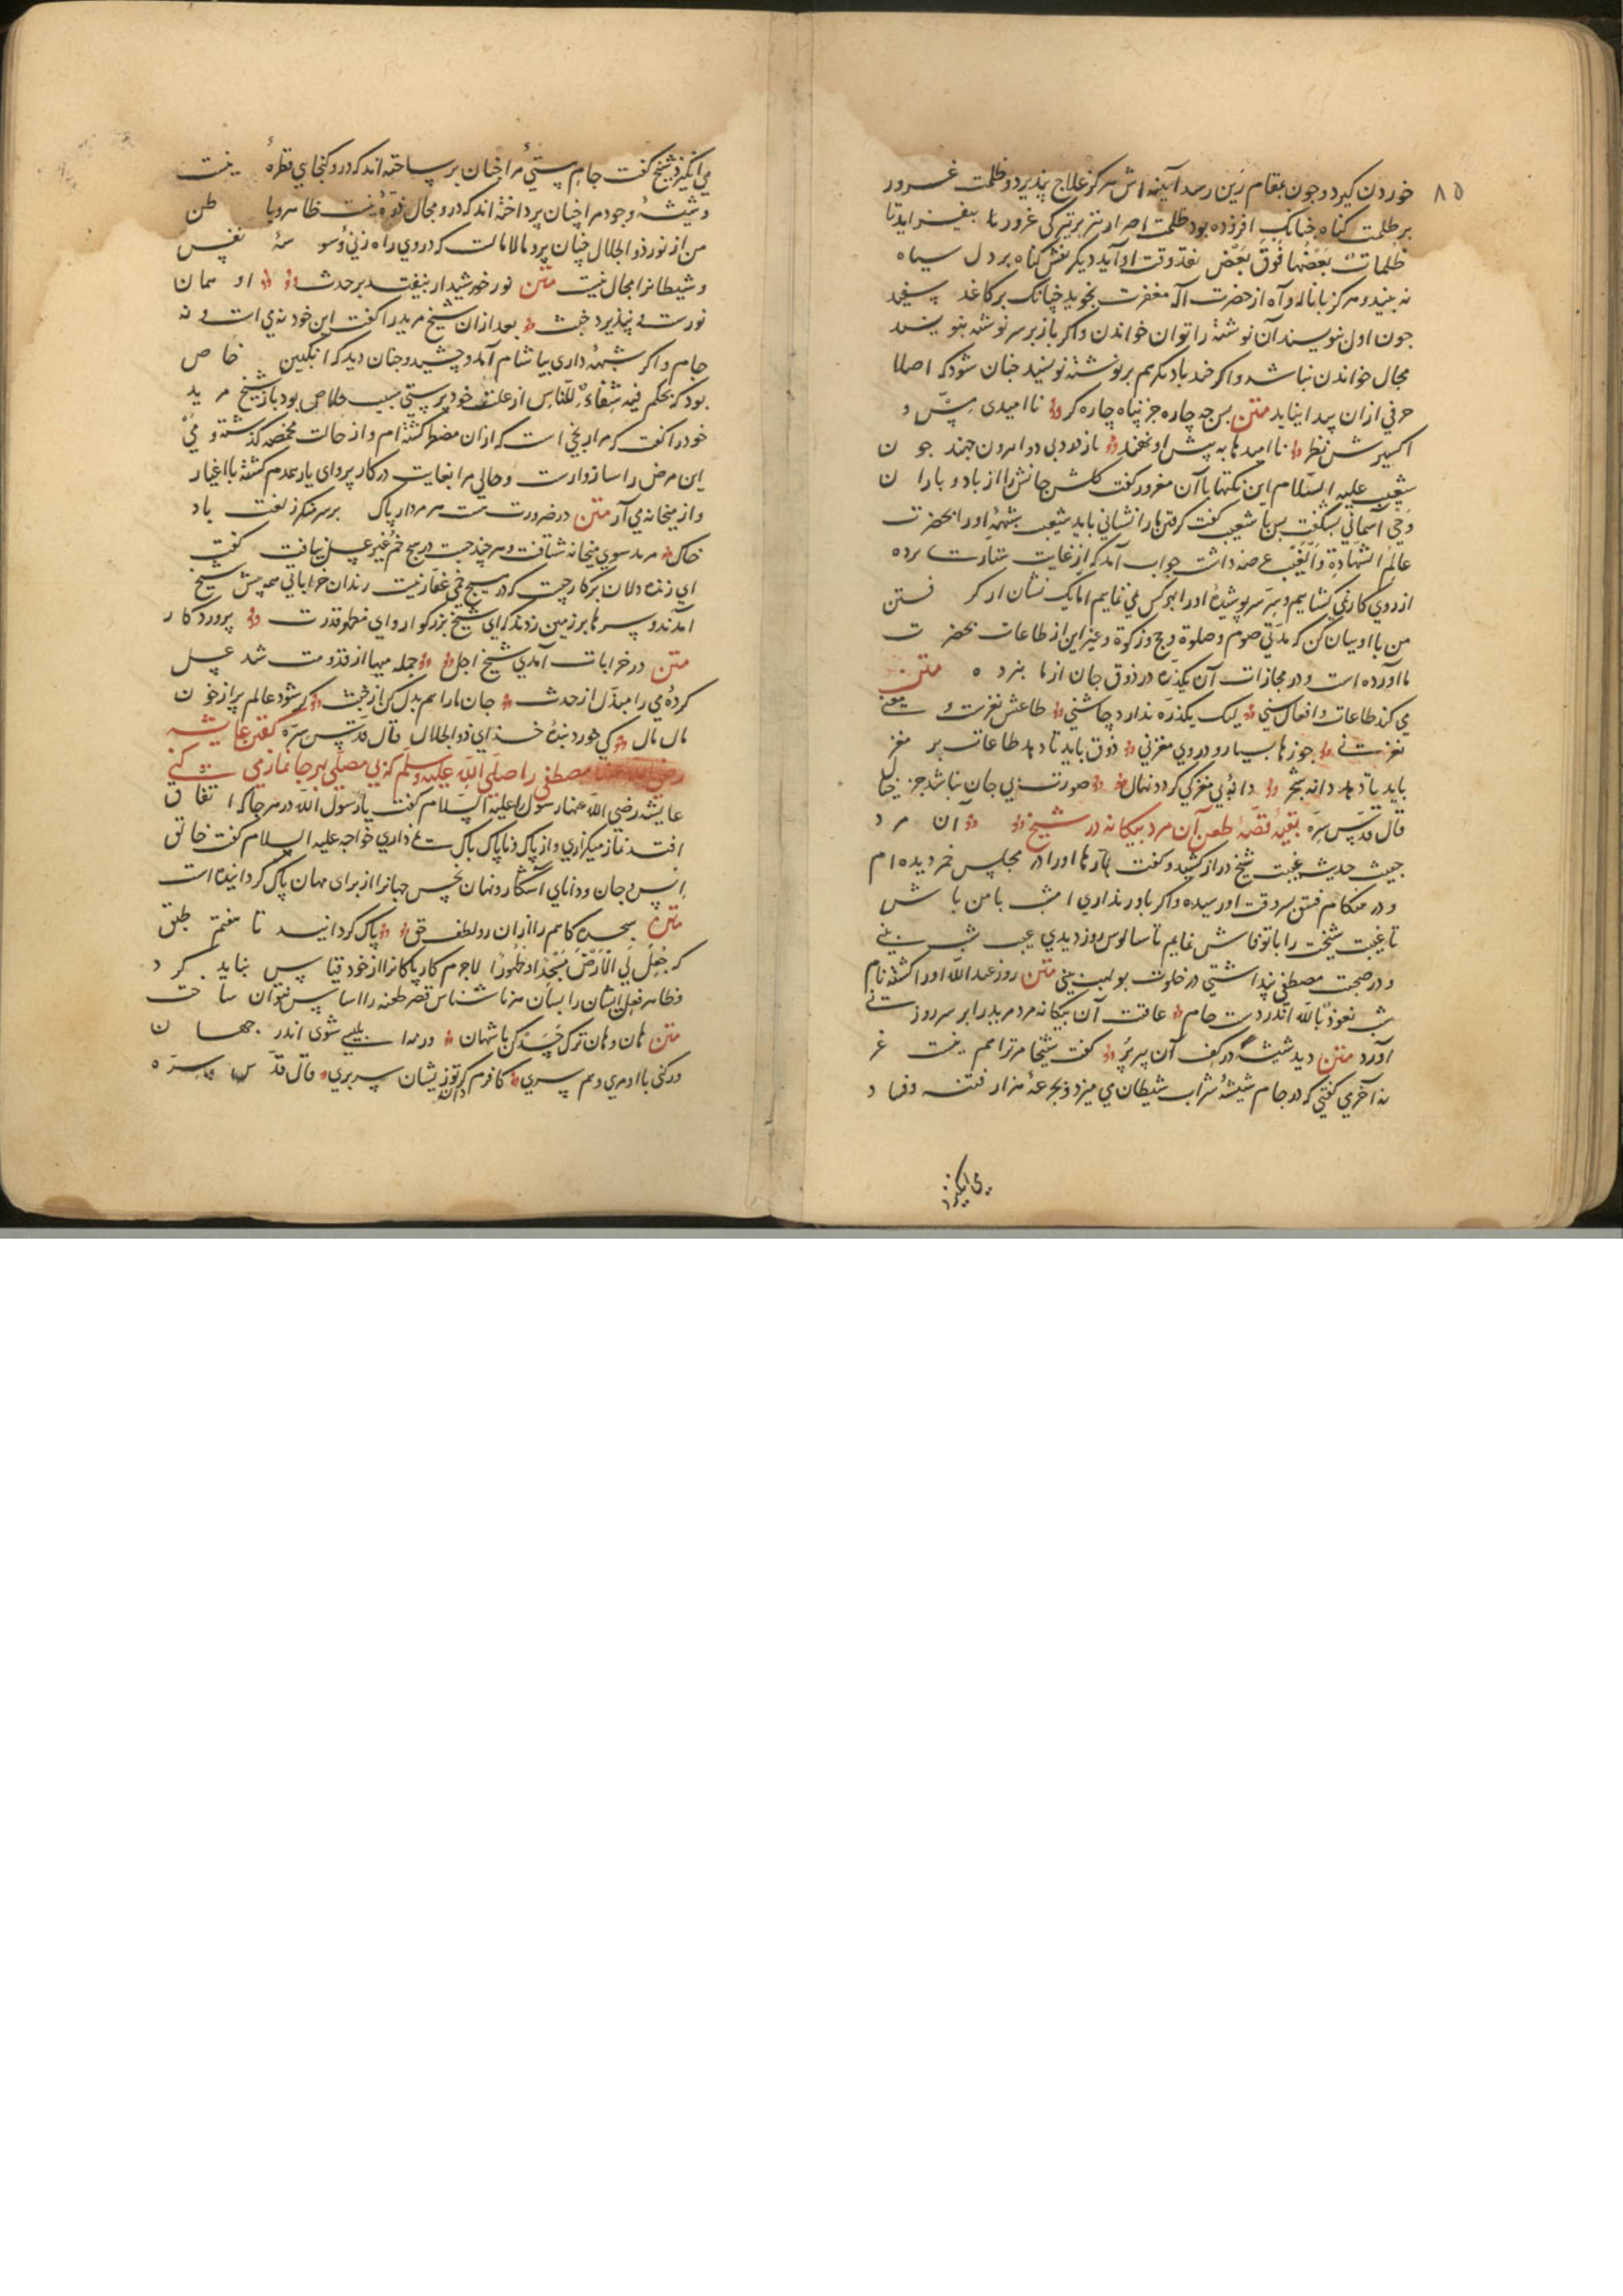 ۸۵
خوردن کیرد و چون بمقام رَین رسد آیینه اش هرکز علاج نپذیرد و ظلمت غرور
بر ظلمت کناه چنانک افزوده بود ظلمت اصرار نیز بر تیرکی غرور بیفزاید تا
ظُلُماتٌ بَعْضُها فَوْقَ بَعْضٍ نقد وقت او آید دیکر نقش کناه بر دل سیاه
نه بیند و هرکز با ناله و آه از حضرت اله مغفرت نجوید چنانک بر کاغذ سپید
چون اول بنویسند آن نوشته را توان خواندن و اکر باز بر سر نوشته بنویسند
مجال خواندن نباشد و اکر خود بار دیکر هم بر نوشته نویسند چنان شود که اصلا
حرفی از آن پیدا نیاید متن پس چه چاره جز پناه چاره کر ناامیدی مِسّ و
اکسیرش نظر ناامیدیها به پیش او نهید تا ز درد بی دوا بیرون جهید چون
شعیب علیه السّلام این نکتها با آن مغرور کفت کلشن جانش را از باد و باران
وحی آسمانی بشکفت پس با شعیب کفت کرفتن ما را نشانی باید شعیب شبهه او را بحضرت
عالم الشهادة والغیب عرضه داشت جواب آمد که از غایت ستارت پرده
از روی کار نمی کشایم و سِرّ سرپوشیده او را بهر کس نمی نمایم اما یک نشان از کرفتن
من با او بیان کن که مدتی صوم و صلوة و حج و زکوة و غیر این از طاعات بحضرت
ما آورده است و در مجازات آن یکذره در ذوق جان از ما نبرده متن
می کند طاعات و افعال سنی لیک یکذره ندارد چاشنی طاعتش نغزست و معنی
نغز نی جوزها بسیار و در وی مغز نی ذوق باید تا دهد طاعات بر مغز
باید تا دهد دانه شجر دانه بی مغز کی کردد نهال صورت بی جان نباشد جز خیال
قال قدس سره بقیه قصه طعن آن مرد بیکانه در شیخ آن مرد
خبیث حدیث غیبت شیخ دراز کشید و کفت بارها او را در مجلس خمر دیده ام
و در هنکام فسق بسر وقت او رسیده و اکر باور نداری امشب با من باش
تا غیبت شیخت را با تو فاش نمایم تا سالوس روز دیدی عیب شب بینی
و در صحبت مصطفی پنداشتی در خلوت بولهب بینی متن روز عبدالله او را کشته نام
شب نعوذ بالله اندر دست جام عاقبت آن بیکانه مرد مرید را بر سر روزنی
آورد متن دید شیشه در کف آن پیر پُر کفت شیخا مر ترا هم هست غر
نه آخر می کفتی که در جام شیشه شراب شیطان می میزد و بجرعهٔ هزار فتنه و فساد
می انکیزد
می انکیزد شیخ کفت جام هستی مرا چنان پر ساخته اند که درو کنجای قطرهٔ نیست
و شیشهٔ وجود مرا چنان پرداخته اند که درو مجال ذرهٔ نیست ظاهر و باطن
من از نور ذوالجلال چنان پر و مالامالست که در وی راه زنی وسوسهٔ نفس
و شیطانرا مجال نیست متن نور خورشید ار بیفتد بر حدث او همان
نورست نپذیرد خبث بعد از ان شیخ مرید را کفت این خود نه می است و نه
جام و اکر شبهه داری بیا شام آمد و چشید و چنان دید که انکبین خاص
بود که بحکم فیه شفاءٌ للنّاس از علت خود پرستی سبب خلاص بود باز شیخ مرید
خود را کفت که مرا رنجی است که از ان مضطر کشته ام و از حالت مخمصه کذشته و می
این مرض را سازوارست و حالی مرا بغایت در کار پروای یار ندارم کشته با اغیار
و از میخانه می آر متن در ضرورت هست هر مردار پاک بر سر منکر ز لعنت باد
خاک مرید سوی میخانه شتافت و هر چند جست در هیچ خُم غیر عسل نیافت کفت
ای رندان این کار چیست که در هیچ خمی عقار نیست رندان خراباتی همه پیش شیخ
آمدند و سرها بر زمین زدند که ای شیخ بزرکوار و ای مظهر قدرت پروردکار
متن در خرابات آمدی شیخ اجل جمله میها از قدومت شد عسل
کردهٔ می را مبدّل از حدث جان ما را هم بدل کن از خبث کر شود عالم پر از خون
مال مال کی خورد بندهٔ خدای ذوالجلال قال قدس سره کفتن عایشه
رضی الله عنها مصطفی را صلی الله علیه وسلم که بی مصلی بهر جا نماز می کنی
عایشه رضی الله عنها رسول را علیه السلام کفت یا رسول الله در هر جا که اتفاق
افتد نماز میکزاری و از پاک و ناپاک باک نمی داری خواجه علیه السلام کفت خالق
انس و جان و دانای آشکار و نهان نجس جهانرا از برای مهان پاک کردانیده است
متن سجده کاهم را از ان رو لطف حق پاک کردانید تا هفتم طبق
که جُعِلَ لی الأرضُ مَسْجِدًا و طَهُورًا لاجرم کار پاکانرا از خود قیاس نباید کرد
و ظاهر فعل ایشان را بسان هر ناشناس قصر طعنه را اساس نتوان ساخت
متن هان و هان ترک حَسَد کن با شهان ورنه ابلیسی شوی اندر جهان
ور کنی با او مری و هم سری کافرم کر تو ز ایشان سر بری قال قدس سره